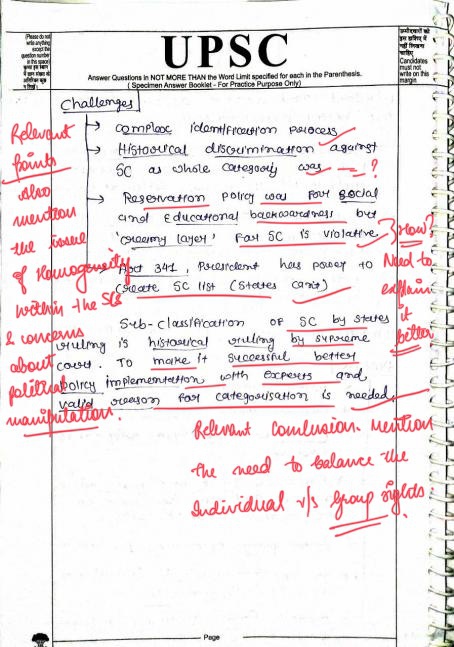 (Please do not
write anything
except the
question number
in this space)
UPSC
Answer Questions in NOT MORE THAN the Word Limit specified for each in the Parenthesis.
( Specimen Answer Booklet - For Practice Purpose Only)
उम्मीदवारों को
इस हाशिए में
नहीं लिखना
चाहिए
Candidates
must not
write on this
margin
Challenges
→ complex identification process
→ Historical discrimination against
SC as whole category was — = ?
→ Reservation policy was for social
and Educational backwardness but
'creamy layer' for SC is violative
→ Art 341, President has power to
create SC list (States can't)
Sub-Classification of SC by states
ruling is historical ruling by supreme
court. To make it successful better
policy implementation with experts and
valid reason for categorisation is needed.
Relevant
points
also
mention
the issue
of Homogeneity
within the SCs
& concerns
about
political
manipulation.
How?
Need to
explain
it
better
Relevant Conclusion. Mention
the need to balance the
Individual v/s Group rights.
Page